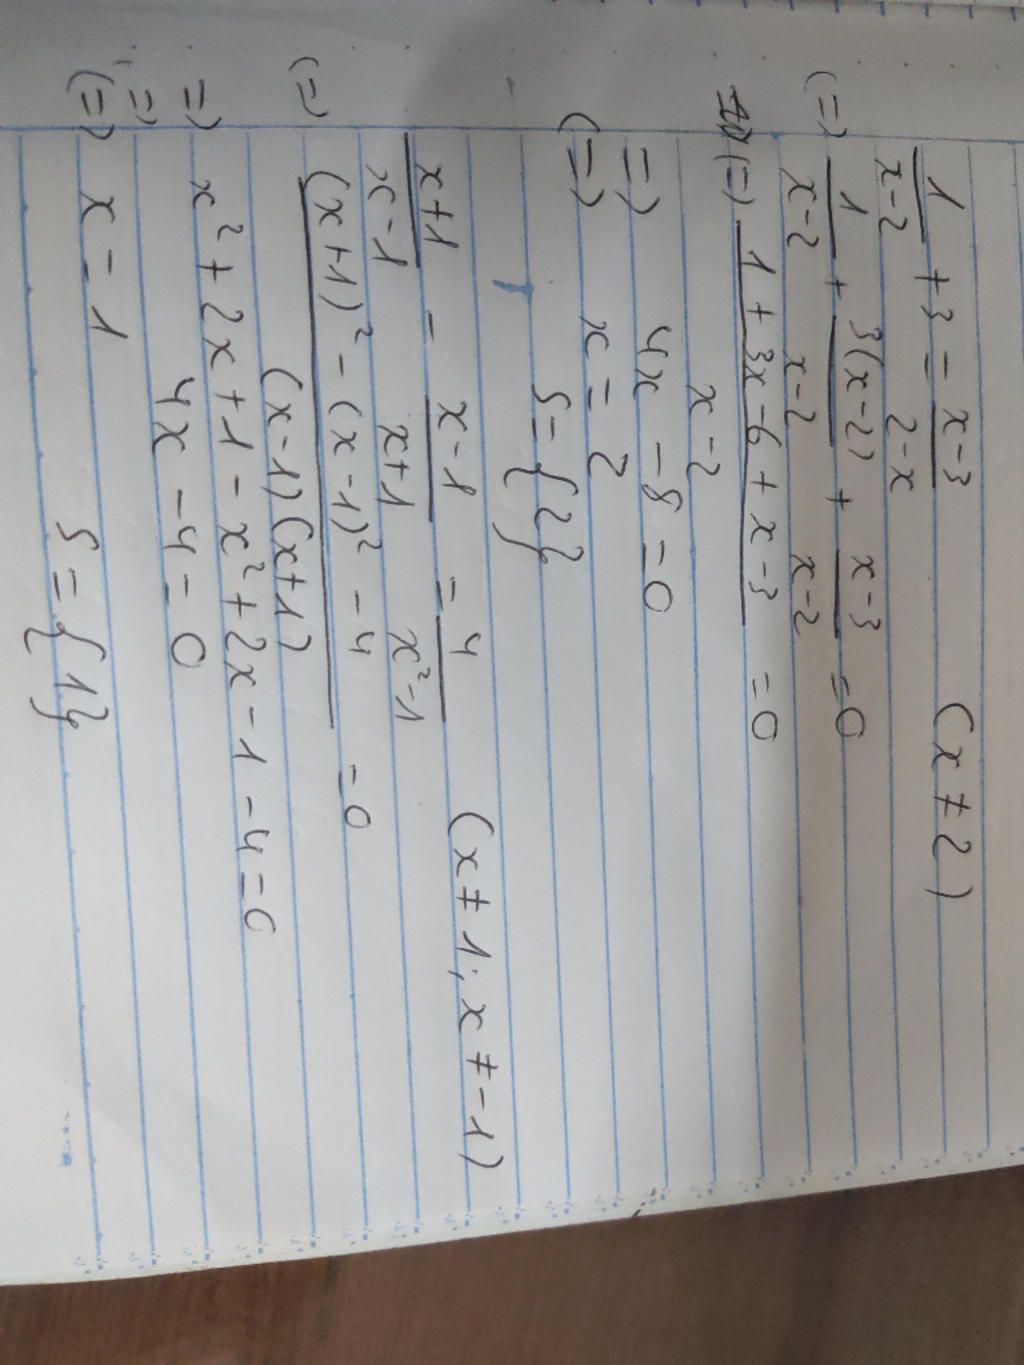 1/(x-2) + 3 = (x-3)/(2-x) (x ≠ 2)
(=) 1/(x-2) + 3(x-2)/(x-2) + (x-3)/(x-2) = 0
(=) (1 + 3x - 6 + x - 3)/(x-2) = 0
=) 4x - 8 = 0
(=) x = 2
S = {2}
(x+1)/(x-1) - (x-1)/(x+1) = 4/(x²-1) (x ≠ 1; x ≠ -1)
(=) ((x+1)² - (x-1)² - 4)/((x-1)(x+1)) = 0
=) x² + 2x + 1 - x² + 2x - 1 - 4 = 0
=) 4x - 4 = 0
(=) x = 1
S = {1}